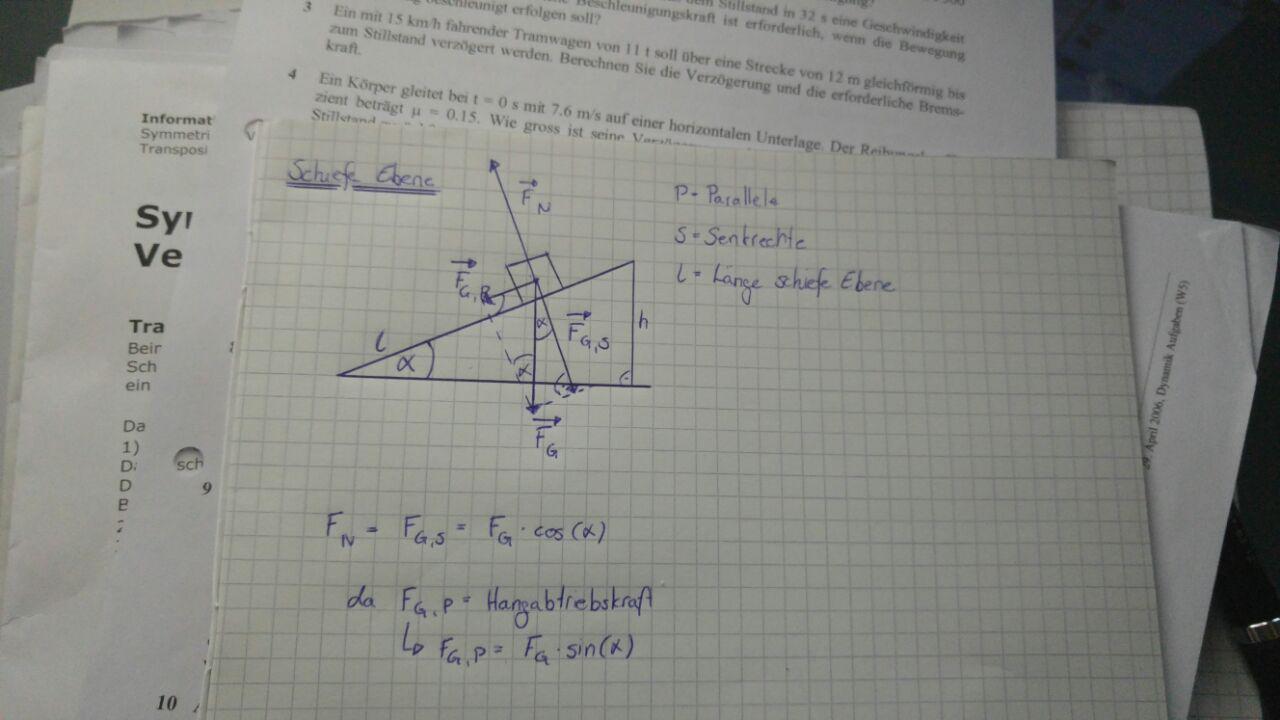 dem Stillstand in 32 s eine Geschwindigkeit
Beschleunigungskraft ist erforderlich, wenn die Bewegung
erfolgen soll?
3 Ein mit 15 km/h fahrender Tramwagen von 11 t soll über eine Strecke von 12 m gleichförmig bis
zum Stillstand verzögert werden. Berechnen Sie die Verzögerung und die erforderliche Brems-
kraft.
4 Ein Körper gleitet bei t = 0 s mit 7.6 m/s auf einer horizontalen Unterlage. Der
zient beträgt μ = 0.15. Wie gross ist seine
Stillstand
Informat
Symmetri
Transposi
Ve
Tra
Beir
Sch
ein
Da
1)
D
sch
9
10
Schiefe Ebene
F⃗_N
F⃗_G,P
F⃗_G,S
F⃗_G
l
α
α
α
h
P = Parallele
S = Senkrechte
l = Länge schiefe Ebene
F_N = F_G,S = F_G · cos(α)
da F_G,P = Hangabtriebskraft
↳ F_G,P = F_G · sin(α)
April 2006, Dynamik Aufgaben (W5)